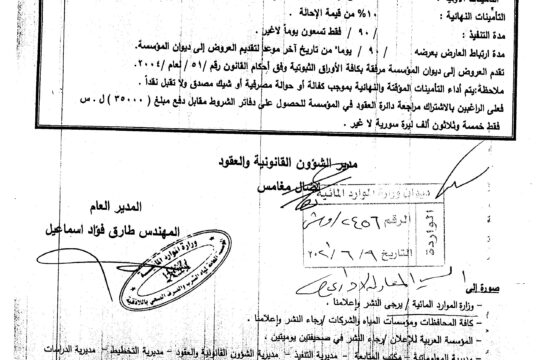 التأمينات النهائية : 10% من قيمة الإحالة
مدة التنفيذ : /90/ فقط تسعون يوماً لاغير.
مدة ارتباط العارض بعرضه /90/ يوما" من تاريخ آخر موعد لتقديم العروض إلى ديوان المؤسسة.
تقدم العروض إلى ديوان المؤسسة مرفقة بكافة الأوراق الثبوتية وفق أحكام القانون رقم /51/ لعام /2004.
ملاحظة:يتم أداء التأمينات المؤقتة والنهائية بموجب كفالة أو حوالة مصرفية أو شيك مصدق ولا تقبل نقداً.
فعلى الراغبين بالاشتراك مراجعة دائرة العقود في المؤسسة للحصول على دفاتر الشروط مقابل دفع مبلغ ( 35000 ) ل . س
فقط خمسة وثلاثون ألف ليرة سورية لا غير .
مدير الشؤون القانونية والعقود
نضال مغامس
المدير العام
المهندس طارق فؤاد اسماعيل
ديوان وزارة الموارد المائية
الواردة
الرقم 2456
التاريخ 9 / 6 /
وزارة الموارد المائية
صورة إلى
- وزارة الموارد المائية / يرجى النشر وإعلامنا .
- كافة المحافظات ومؤسسات المياه والشركات /رجاء النشر وإعلامنا .
- المؤسسة العربية للإعلان /رجاء النشر في صحيفتين يوميتين .
- مديرية التنفيذ - مديرية الشؤون القانونية والعقود - مديرية التخطيط - مديرية الدراسات